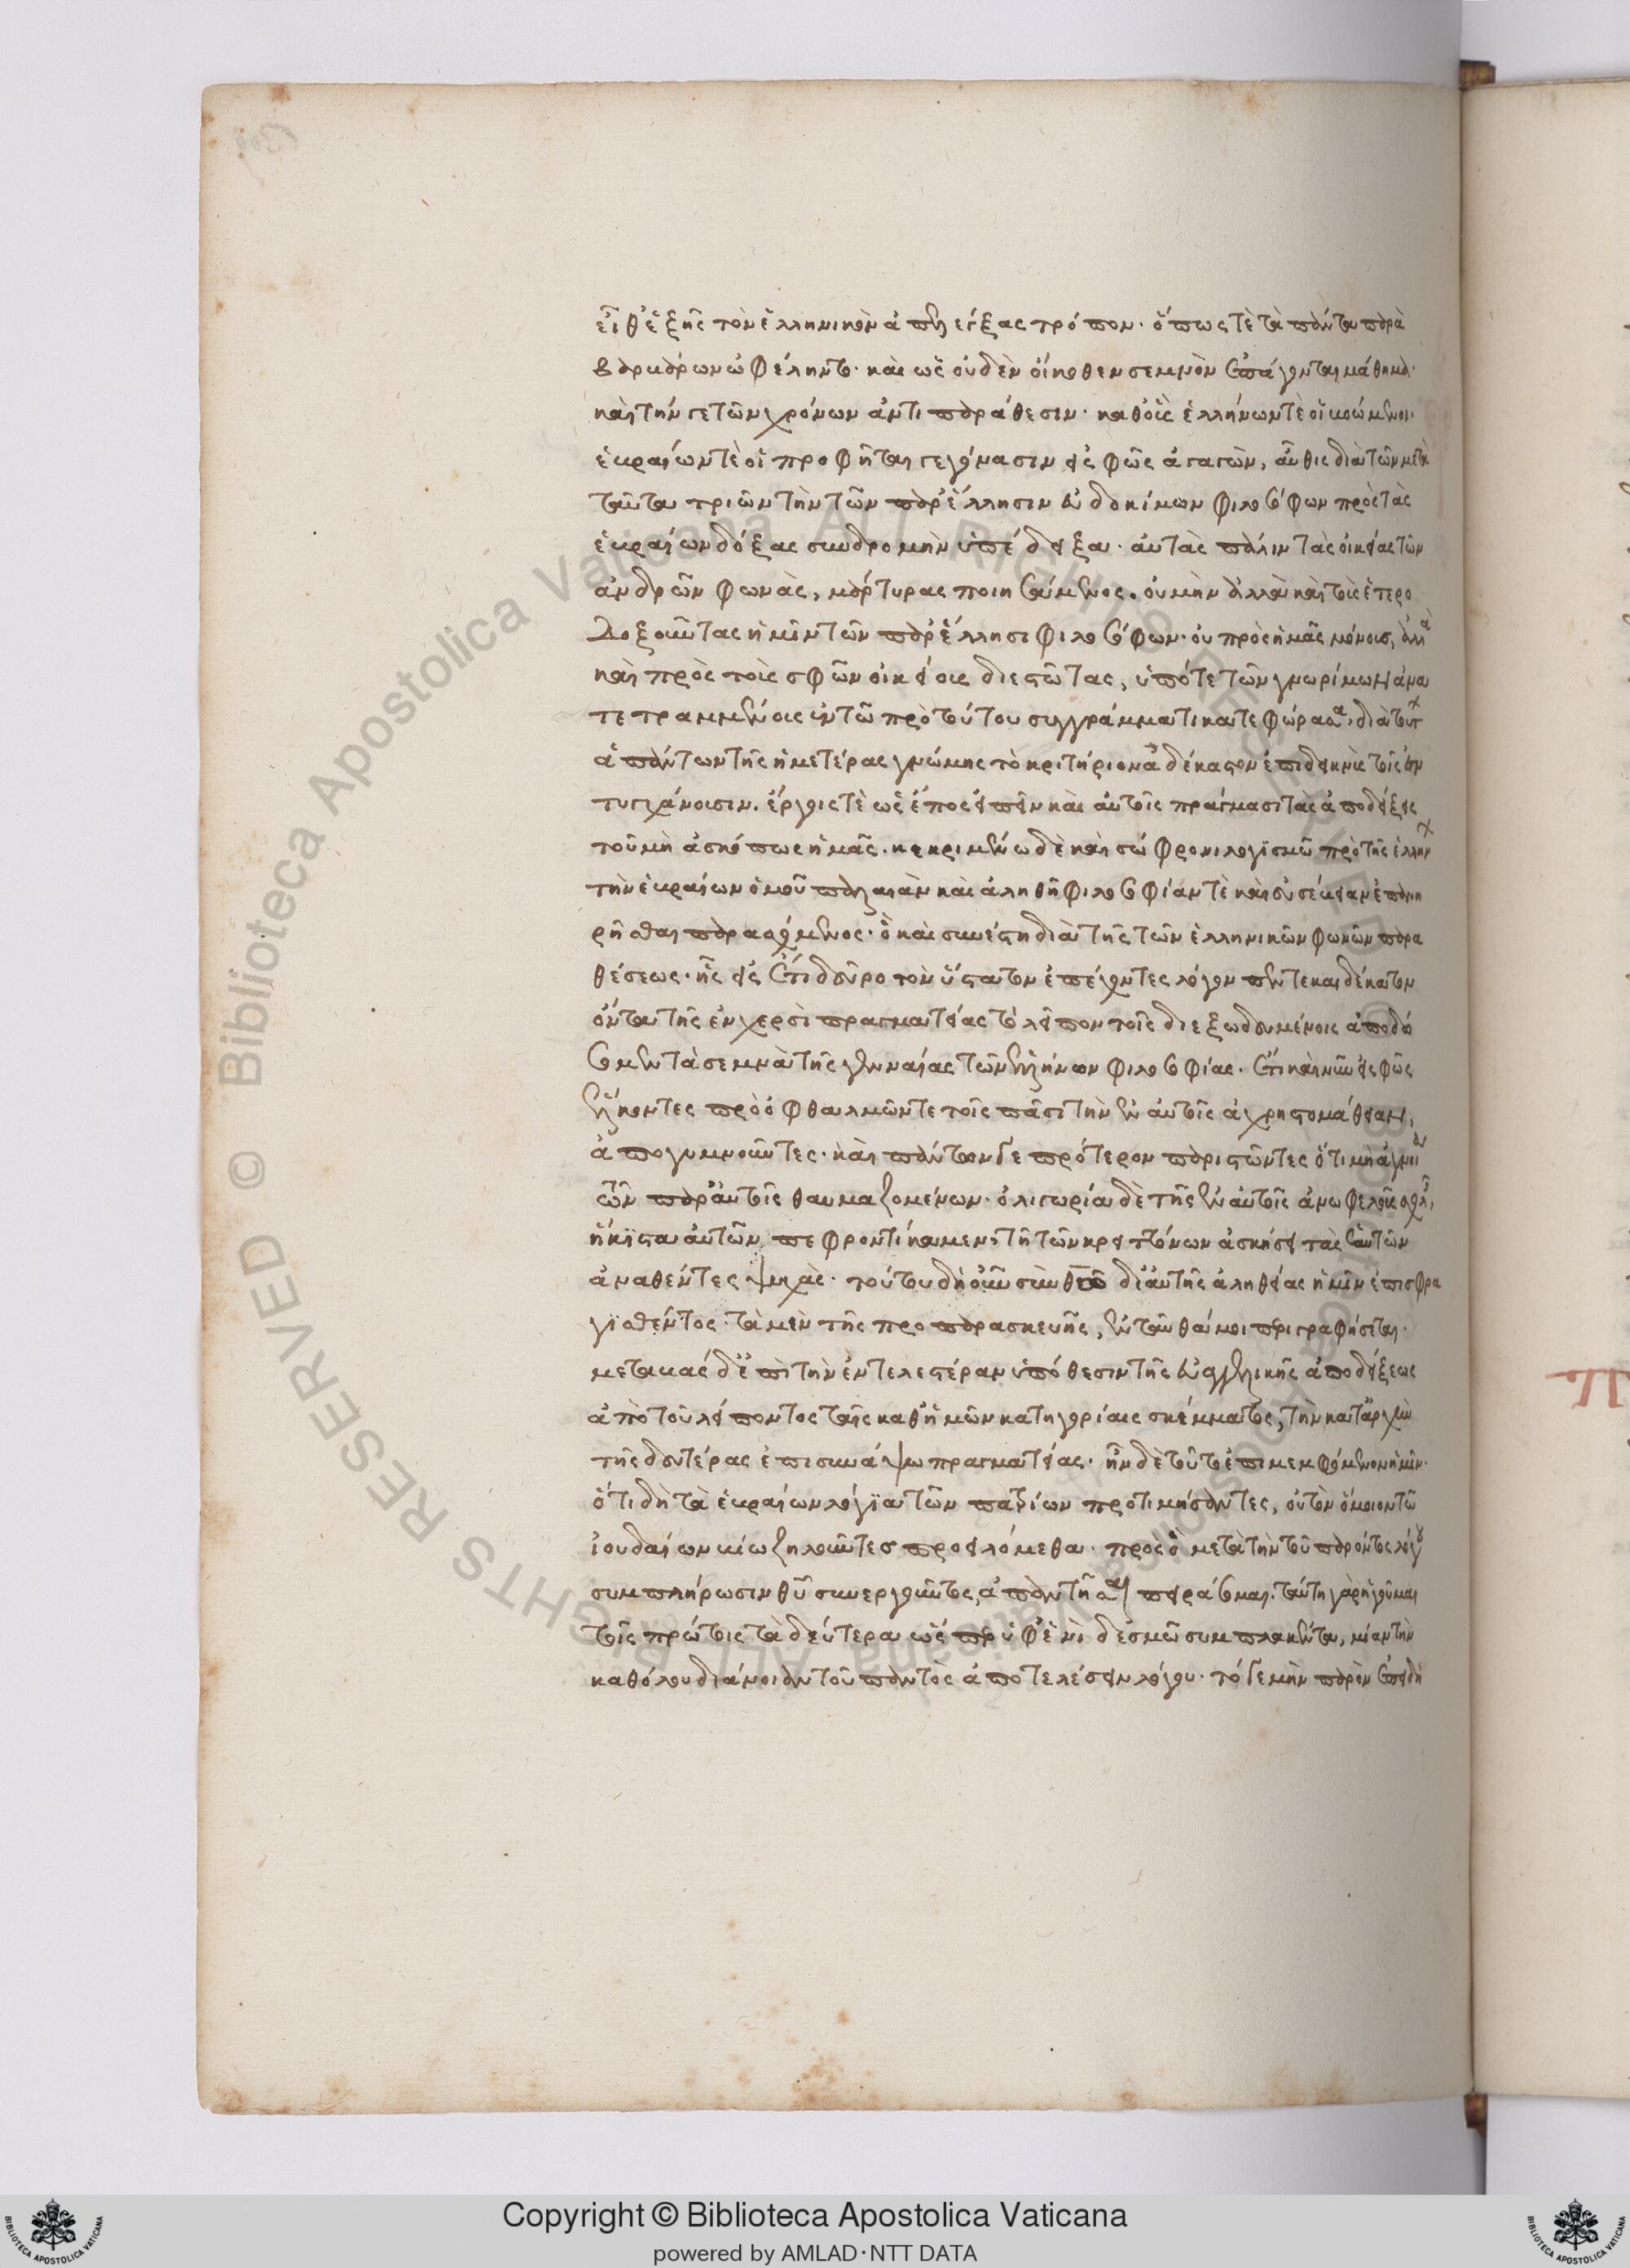 εἶθ' ἑξῆς τὸν ἑλληνικὸν ἀπηλείγξας τρόπον· ὅπως τὲ τὰ πάντα παρὰ
βαρβάρων ὠφέληντο· καὶ ὡς οὐδὲν οἴκοθεν σεμνὸν ἐπάγονται μάθημα·
καὶ τήν γε τῶν χρόνων ἀντιπαράθεσιν· καθ' οὓς ἑλλήνων τὲ οἱ βοώμενοι·
ἑβραίων τὲ οἱ προφῆται γεγόνασιν εἰς φῶς ἀγαγὼν, αὖθις διὰ τῶν μετὰ
ταῦτα τριῶν τὴν τῶν παρ' ἕλλησιν εὐδοκίμων φιλοσόφων πρὸς τὰς
ἑβραίων δόξας συνδρομὴν ὑπέδειξα· αὐτὰς πάλιν τὰς οἰκείας τῶν
ἀνδρῶν φωνὰς, μάρτυρας ποιησάμενος. οὐ μὴν ἀλλὰ καὶ τοὺς ἑτερο
δοξοῦντας ἡμῖν τῶν παρ' ἕλλησι φιλοσόφων· οὐ πρὸς ἡμᾶς μόνους, ἀλλὰ
καὶ πρὸς τοὺς σφῶν οἰκείους διεστῶτας, ὑπό τε τῶν γνωρίμων ἀνα
τετραμμένους ἐν τῶ πρὸ τούτου συγγράμματι κατεφώρασα, διὰ τούτων
ἁπάντων τῆς ἡμετέρας γνώμης τὸ κριτήριον ἀδέκαστον ἐπιδεικνὺς τοῖς ἐν
τυγχάνουσιν. ἔργοις τὲ ὡς ἔπος εἰπεῖν καὶ αὐτοῖς πράγμασι τὰς ἀποδείξεις
τοῦ μὴ ἀσκόπως ἡμᾶς. κεκριμένω δὲ καὶ σώφρονι λογϊσμῶ πρὸ τῆς ἑλλήνων
τὴν ἑβραίων ὁμοῦ παλαιὰν καὶ ἀληθῆ φιλοσοφίαν τὲ καὶ εὐσέβειαν ἐπανη
ρῆσθαι παρασχόμενος· ὃ καὶ συνέστη διὰ τῆς τῶν ἑλληνικῶν φωνῶν παρα
θέσεως· ἧς εἰς ἔτι δεῦρο τὸν ὕστατον ἐπέχοντες λόγον πεντεκαιδέκατον
ὄντα τῆς ἐν χερσὶ πραγματείας τὸ λεῖπον τοῖς διεξωδευμένοις ἀποδώ
σωμεν τὰ σεμνὰ τῆς γενναίας τῶν ἑλλήνων φιλοσοφίας· ἔτι καὶ νῦν εἰς φῶς
ἕλκοντες πρὸ ὀφθαλμῶν τε τοῖς πᾶσι τὴν ἐν αὐτοῖς ἀχρηστομάθειαν,
ἀπογυμνοῦντες· καὶ πάντων γε πρότερον παριστῶντες ὅτι μὴ ἀγνοία
τῶν παρ' αὐτοῖς θαυμαζομένων· ὀλιγωρία δὲ τῆς ἐν αὐτοῖς ἀνωφελοῦς σχολῆς,
ἥκιστα αὐτῶν πεφροντίκαμεν, τῆ τῶν κρειττόνων ἀσκήσει τὰς ἑαυτῶν
ἀναθέντες ψυχάς· τούτου δὴ οὖν σὺν θεῶ δι' αὐτῆς ἀληθείας ἡμῖν ἐπισφρα
γϊσθέντος· τὰ μὲν τῆς προπαρασκευῆς, ἐνταῦθα μοι περιγραφήσεται·
μεταβὰς δ' ἐπὶ τὴν ἐντελεστέραν ὑπόθεσιν τῆς εὐαγγελικῆς ἀποδείξεως
ἀπὸ τοῦ λείποντος ταῖς καθ' ἡμῶν κατηγορίαις σκέμματος, τὴν κατ' ἀρχὴν
τῆς δευτέρας ἐπισυνάψω πραγματείας· ἦν δὲ τοῦτο ἐπιμεμφόμενον ἡμῖν·
ὅτι δὴ τὰ ἑβραίων λόγϊα τῶν πατρίων προτιμήσαντες, οὐ τὸν ὅμοιον τῶ
ἰουδαίων βίω ζηλοῦντες προειλόμεθα· πρὸς ὃ μετὰ τὴν τοῦ παρόντος λόγου
συμπλήρωσιν θεοῦ συνεργοῦντος, ἀπαντῆσαι πειράσομαι. ταύτη γὰρ ἡγοῦμαι
τοῖς πρώτοις τὰ δεύτερα ὡς περ ὑφ' ἑνὶ δεσμῶ συμπλακέντα, μίαν τὴν
καθόλου διάνοιαν τοῦ παντὸς ἀποτελέσειν λόγου· τό γε μὴν παρὸν ἐπειδὴ
Biblioteca Apostolica Vaticana ALL RIGHTS RESERVED ©
Copyright © Biblioteca Apostolica Vaticana
powered by AMLAD·NTT DATA